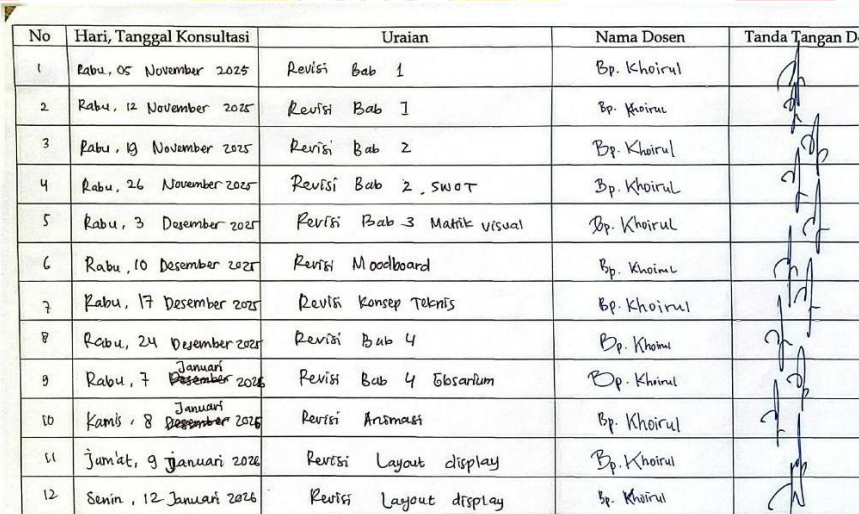 No Hari, Tanggal Konsultasi Uraian Nama Dosen Tanda Tangan D
1 Rabu, 05 November 2025 Revisi Bab 1 Bp. Khoirul
2 Rabu, 12 November 2025 Revisi Bab 1 Bp. Khoirul
3 Rabu, 19 November 2025 Revisi Bab 2 Bp. Khoirul
4 Rabu, 26 November 2025 Revisi Bab 2, SWOT Bp. Khoirul
5 Rabu, 3 Desember 2025 Revisi Bab 3 Matrik visual Bp. Khoirul
6 Rabu, 10 Desember 2025 Revisi Moodboard Bp. Khoirul
7 Rabu, 17 Desember 2025 Revisi Konsep Teknis Bp. Khoirul
8 Rabu, 24 Desember 2025 Revisi Bab 4 Bp. Khoirul
9 Rabu, 7 Januari 2026 Revisi Bab 4 Glosarium Bp. Khoirul
10 Kamis, 8 Januari 2026 Revisi Animasi Bp. Khoirul
11 Jum'at, 9 Januari 2026 Revisi Layout display Bp. Khoirul
12 Senin, 12 Januari 2026 Revisi Layout display Bp. Khoirul